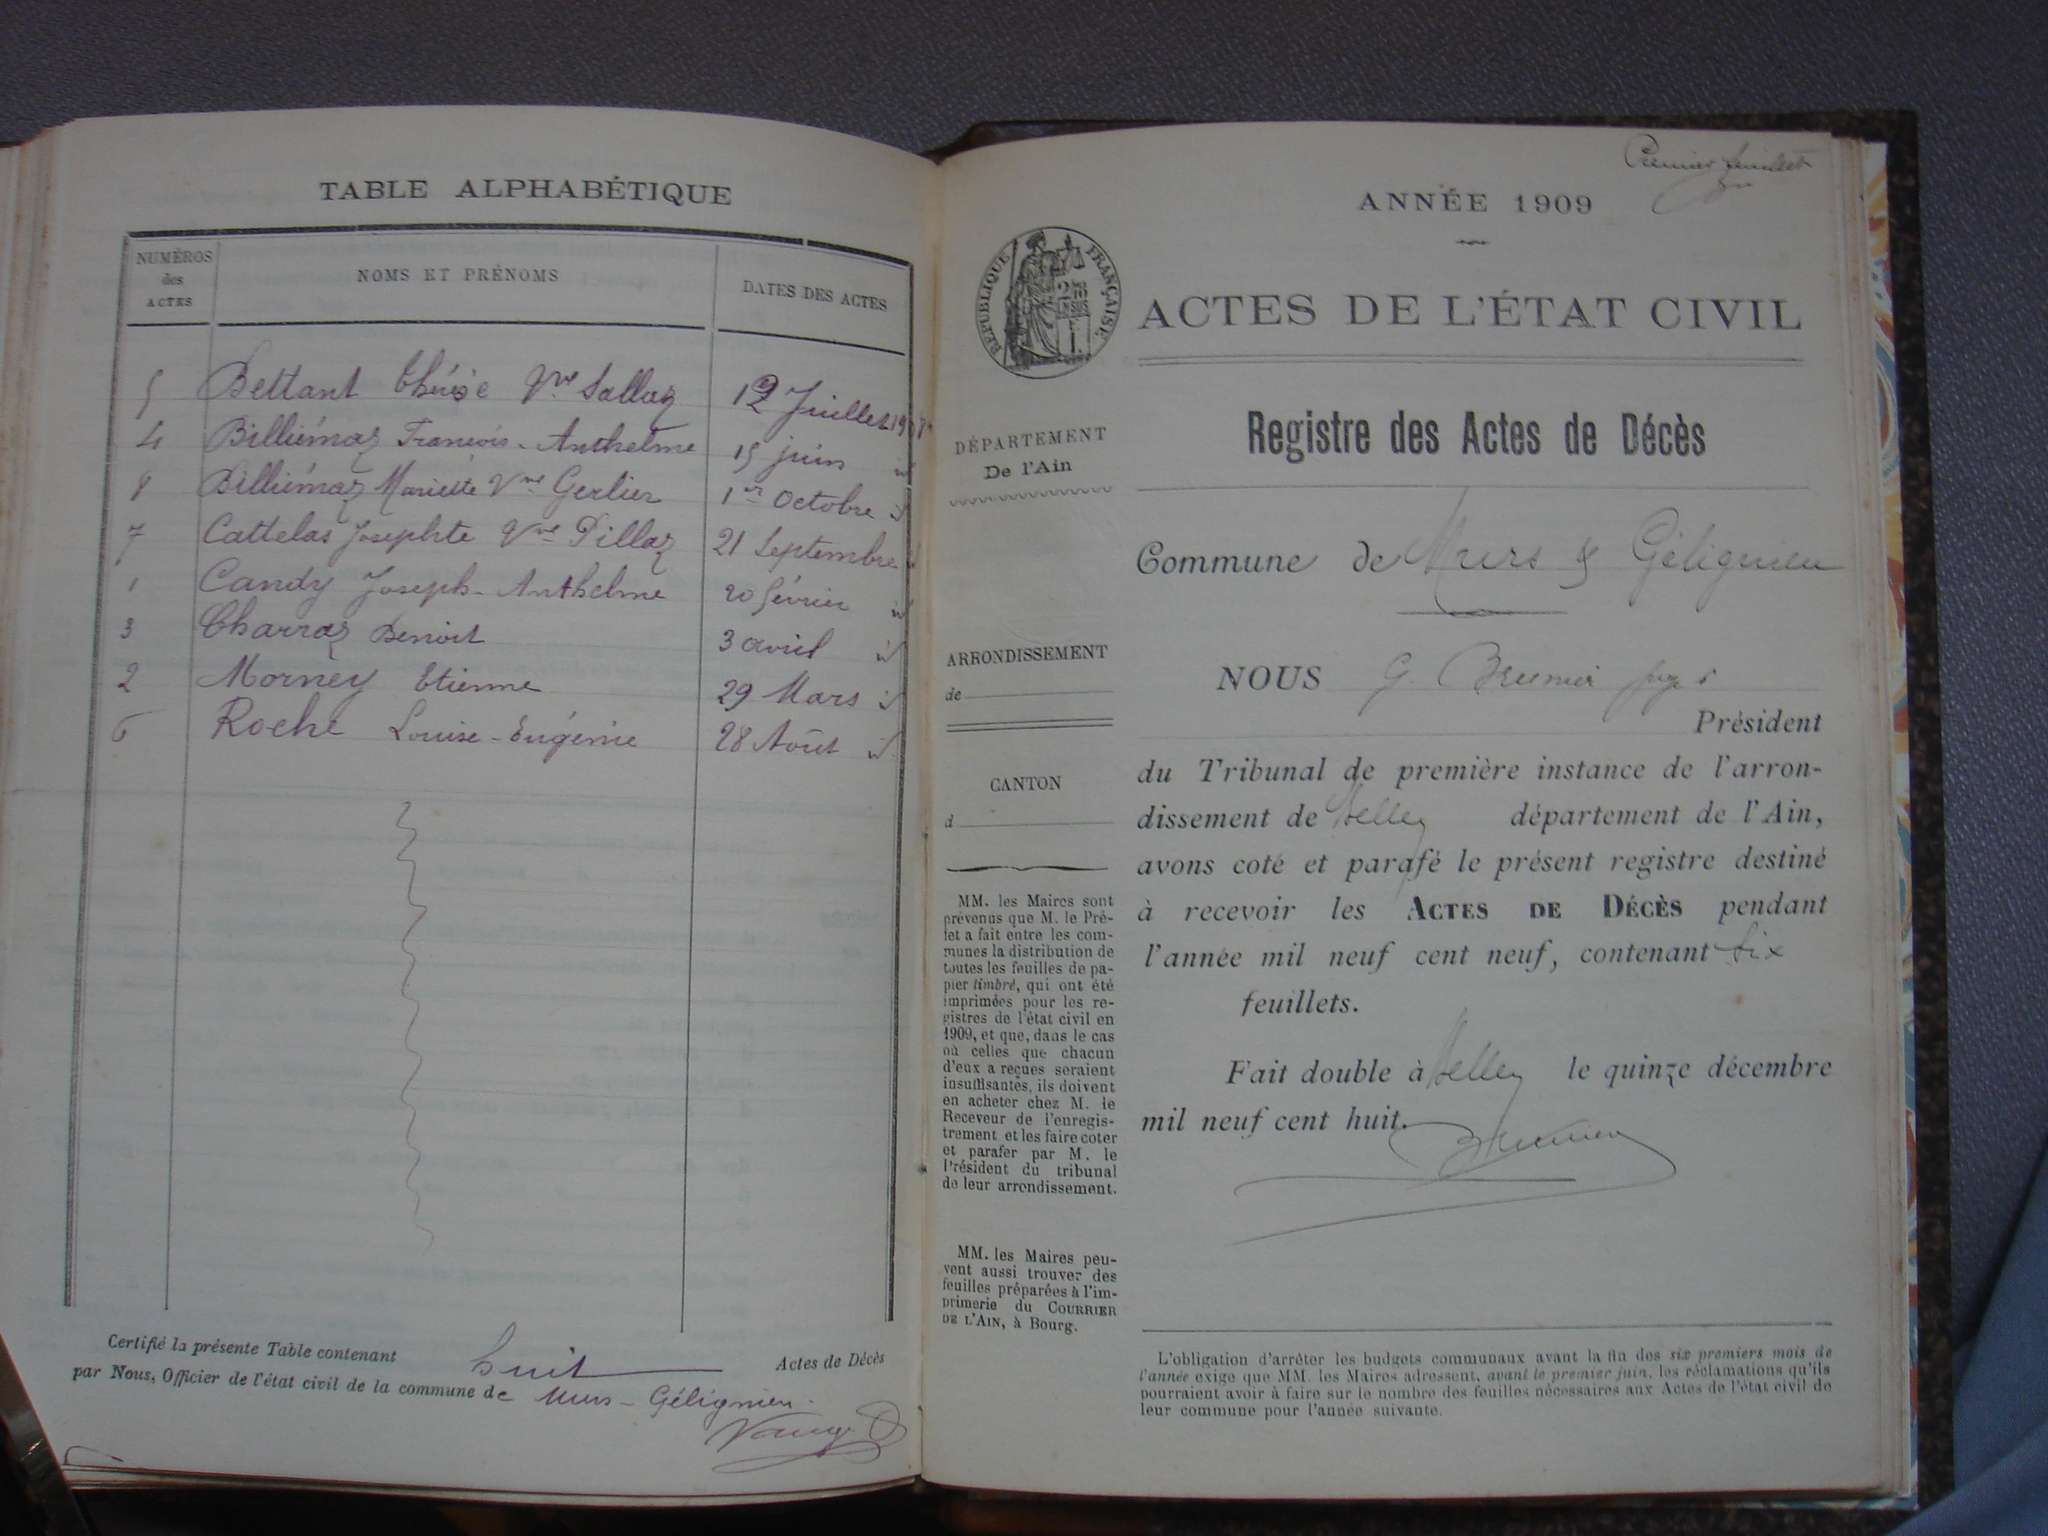 TABLE ALPHABÉTIQUE
NUMÉROS
des
ACTES
NOMS ET PRÉNOMS
DATES DES ACTES
5 Bettant Thérèse Vve Sallaz 12 Juillet 1908
4 Billiémaz François-Anthelme 15 juin id
8 Billiémaz Mariette Vve Gerlier 1er Octobre id
7 Cattelas Josephte Vve Pillaz 21 Septembre id
1 Candy Joseph-Anthelme 20 février id
3 Charraz Benoit 3 avril id
2 Mornèy Etienne 29 Mars id
6 Roche Louise-Eugénie 28 Août id
Certifié la présente Table contenant huit Actes de Décès
par Nous, Officier de l'état civil de la commune de Murs-Gélignieu.
Premier feuillet
ANNÉE 1909
RÉPUBLIQUE FRANÇAISE
ACTES DE L'ÉTAT CIVIL
Registre des Actes de Décès
DÉPARTEMENT
De l'Ain
Commune de Murs & Gélignieu
ARRONDISSEMENT
de
CANTON
d
NOUS G. Brunier juge
Président
du Tribunal de première instance de l'arron-
dissement de Belley département de l'Ain,
avons coté et parafé le présent registre destiné
à recevoir les ACTES DE DÉCÈS pendant
l'année mil neuf cent neuf, contenant six
feuillets.
Fait double à Belley le quinze décembre
mil neuf cent huit.
Brunier
MM. les Maires sont
prévenus que M. le Pré-
fet a fait entre les com-
munes la distribution de
toutes les feuilles de pa-
pier timbré, qui ont été
imprimées pour les re-
gistres de l'état civil en
1909, et que, dans le cas
où celles que chacun
d'eux a reçues seraient
insuffisantes, ils doivent
en acheter chez M. le
Receveur de l'enregis-
trement et les faire coter
et parafer par M. le
Président du tribunal
de leur arrondissement.
MM. les Maires peu-
vent aussi trouver des
feuilles préparées à l'im-
primerie du COURRIER
DE L'AIN, à Bourg.
L'obligation d'arrêter les budgets communaux avant la fin des six premiers mois de
l'année exige que MM. les Maires adressent, avant le premier juin, les réclamations qu'ils
pourraient avoir à faire sur le nombre des feuilles nécessaires aux Actes de l'état civil de
leur commune pour l'année suivante.